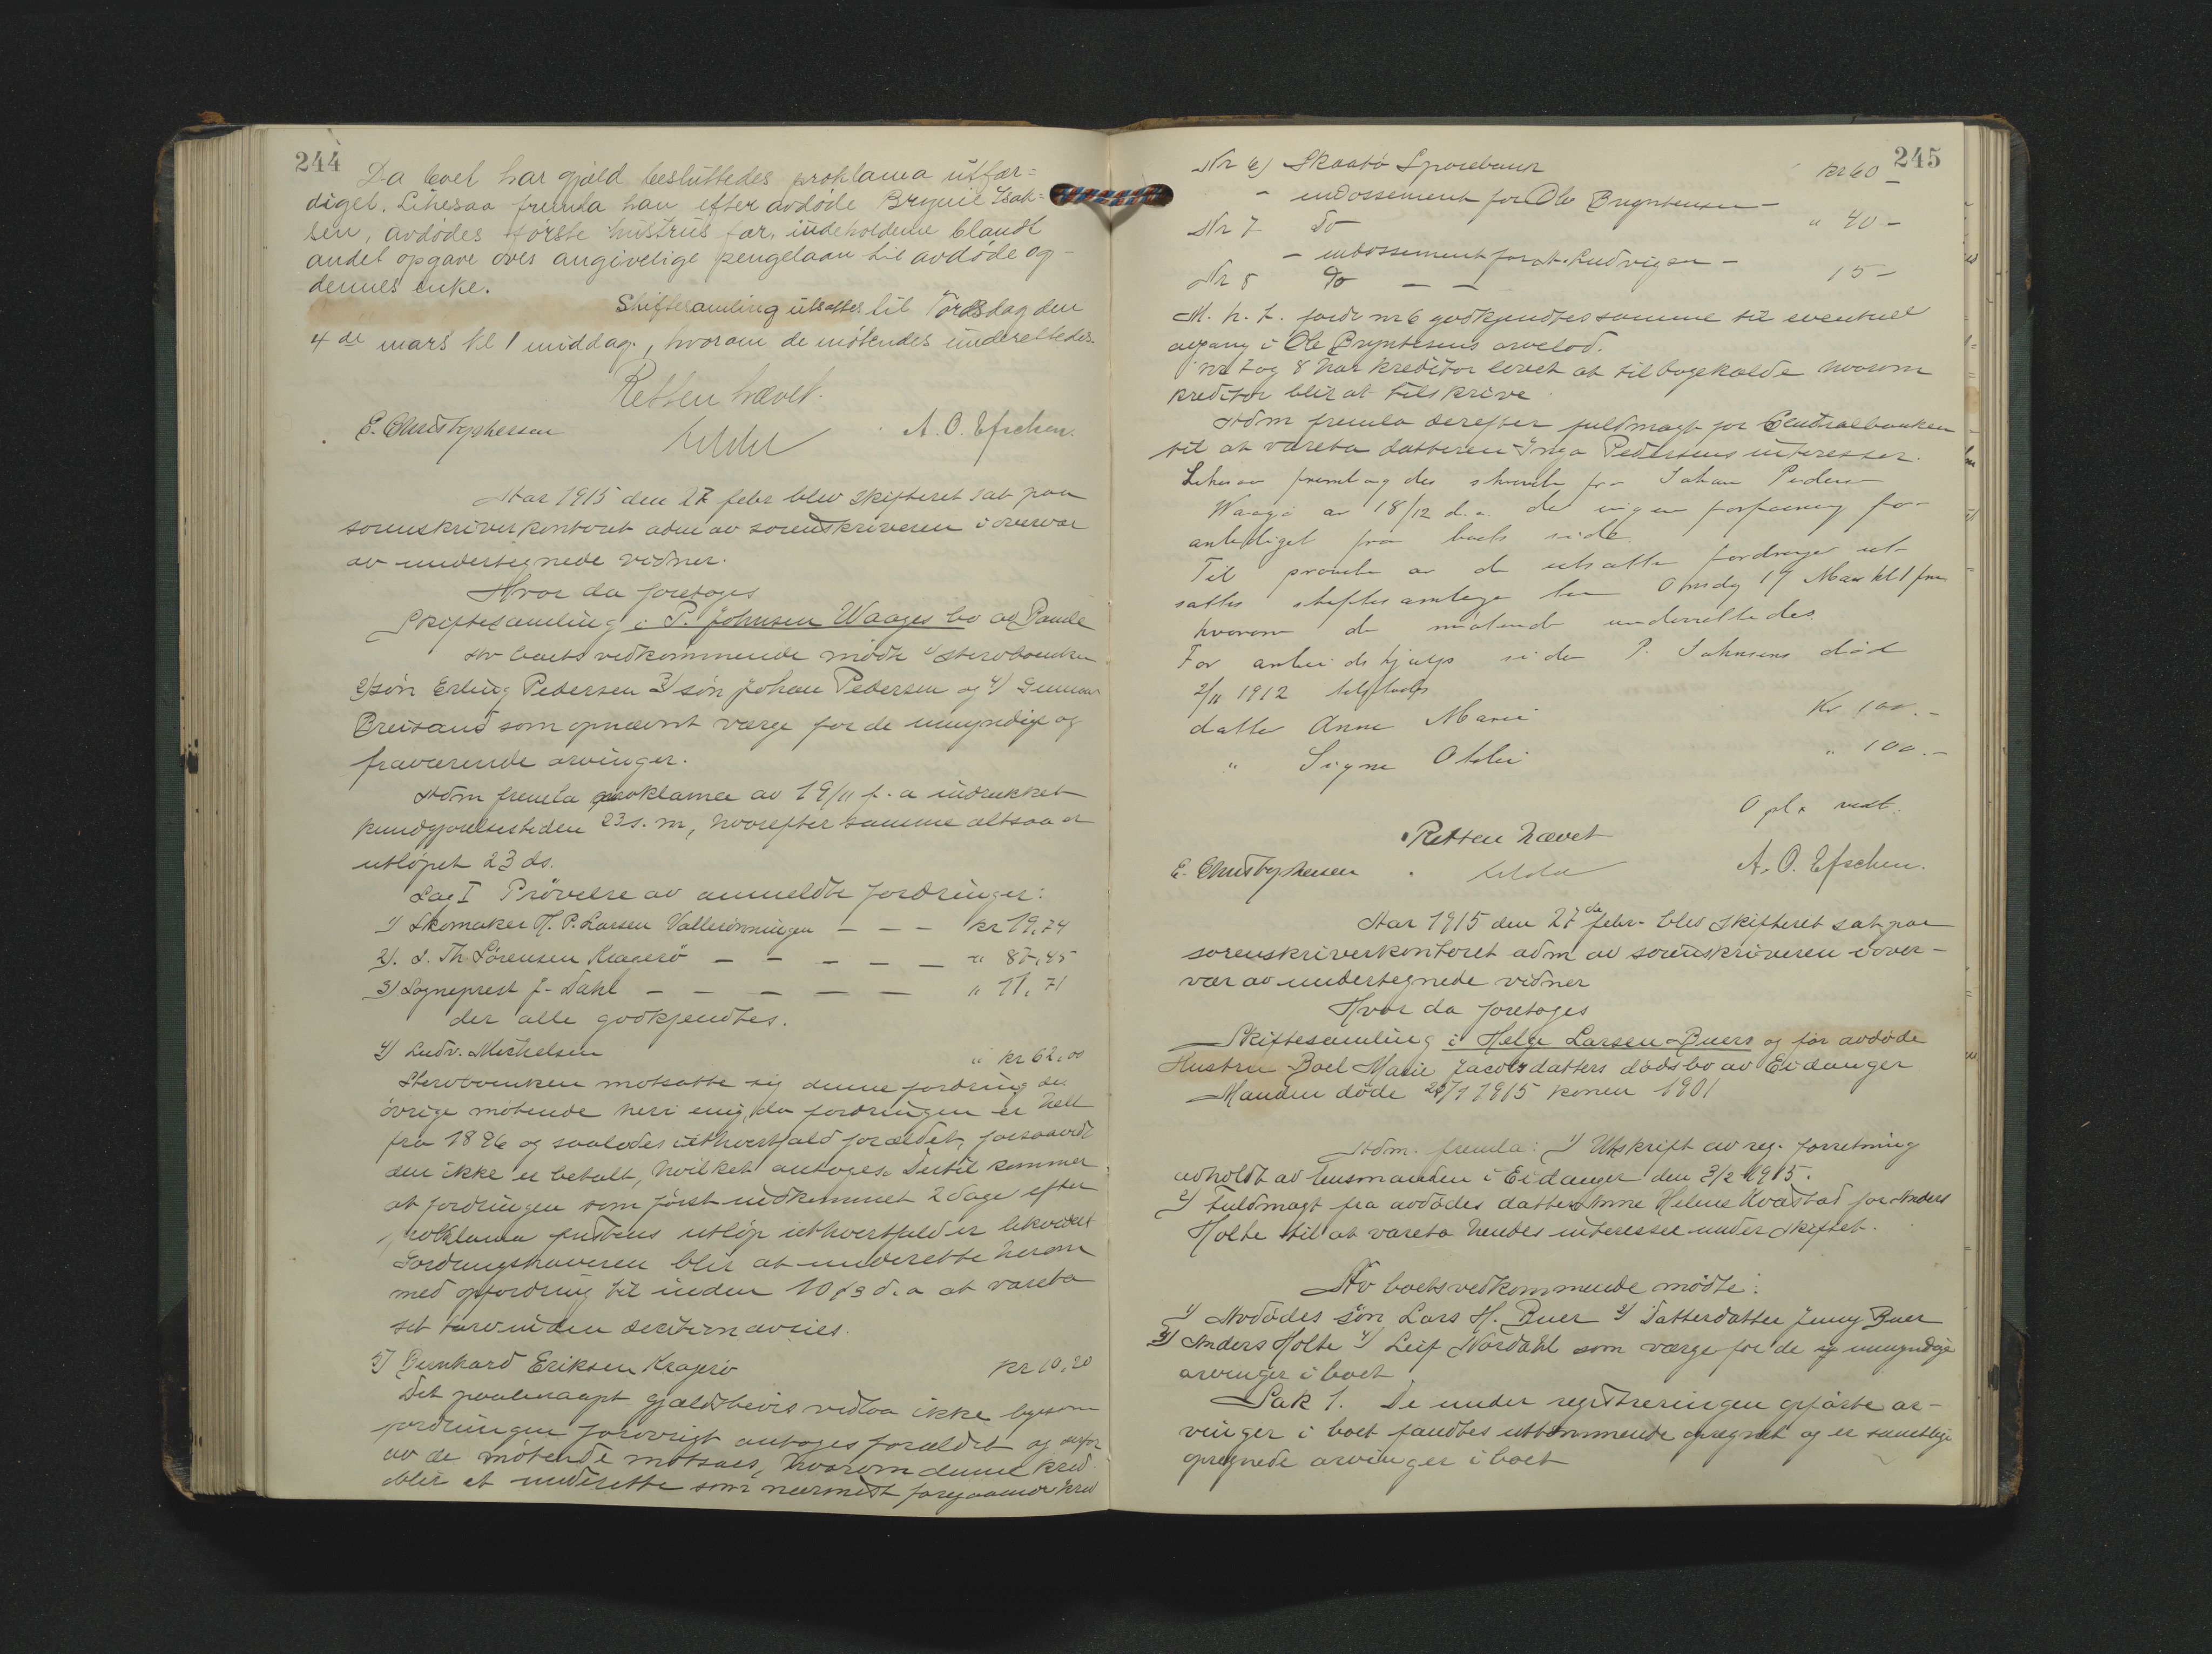 244
Da boet har gjæld besluttedes proklama utfær=
diget. Likesaa fremla han efter avdøde Brynil Isak=
sen, avdødes første hustrus far, indeholdende blandt
andet opgave over angivelige pengelaan til avdøde og
dennes enke.
Skiftesamling utsattes til Torsdag den
4de mars kl 1 middag, hvorom de møtendes underettedes.
Retten hævet.
E. Christophersen A. O. Efschen.
Aar 1915 den 27 febr blev skifteret sat paa
sorenskriverkontoret adm av sorenskriveren i overvær
av undertegnede vidner.
Hvor da foretoges
Skiftesamling i P. Johnsen Waages bo av Sande
Av boets vedkommende mødte 1) Sterboenken
2) søn Erling Pedersen 3) søn Johan Pedersen og 4) Gunnar
Breisand som opnævnt værge for de umyndige og
fraværende arvinger.
Adm fremla proklama av 19/11 f. a indrukket
kundgjørelsestiden 23 s. m, hvorefter samme altsaa er
utløpet 23 ds.
Sag I Prøvelse av anmeldte fordringer:
1) Skomaker H. P. Larsen Vallerønningen - - - kr 19,74
2). S. Th. Sørensen Kragerø - - - - - " 85,45
3) Sogneprest J. Dahl - - - - - " 11,71
der alle godkjendtes.
4) Ludv. Mickelsen " kr 62,00
Sterboenken motsatte sig denne fordring de
øvrige møtende heri enig, da fordringen er helt
fra 1896 og saaledes ialhvertfald forældet, forsaavidt
den ikke er betalt, hvilket antoges. Dertil kommer
at fordringen som først indkommet 2 dage efter
proklama fristens utløp ialhvertfald er
Fordringshaveren blir at underette herom
med opfordring til inden 10/3 d. a at vareta
sit tarv inden avsies.
5) Bernhard Eriksen Kragerø kr 10,20
Det paaberaapt gjældsbevis vedlaa ikke
fordringen forøvrigt antoges forældet og
av de møtende motsaes, hvorom denne kred.
blir at underette som nærmest foregaaende kred
245
Nr 6) Skaatø Sparebank kr 60 -
- indossement for Ole Bryntesen -
Nr 7 do " 40 -
- indossement for A. Ludvigsen -
Nr 8 do - - 15 -
M. h. t. fordr nr 6 godkjendtes samme til eventuel
avgang i Ole Bryntesens arvelod.
nr 7 og 8 har kreditor lovet at tilbagekalde hvorom
kreditor blir at tilskrive
Adm fremla derefter fuldmagt for Centralbanken
til at vareta datteren Inga Pedersens interesser.
Likesaa fremlagdes skrivelse fra Johan Pedersen
Waage av 18/12 d. a. der ingen forføining for-
anlediget fra boets side.
Til prøvelse av de utsatte fordringer ut-
sattes skiftesamlingen til Onsdag 17 Mars kl 1 fm
hvorom de møtende underrettedes.
For arbeidshjælp siden P. Johnsens død
2/11 1912 tilstaaes
datter Anne Marie Kr 100.-
" Signe Otilie " 100.-
Opl. vedt.
Retten hævet
E. Christophersen A. O. Efschen.
Aar 1915 den 27de febr. blev skifteret sat paa
sorenskriverkontoret adm av sorenskriveren i over-
vær av undertegnede vidner
Hvor da foretoges
Skiftesamling i Helge Larsen Buers og før avdøde
Hustru Boel Marie Jacobsdatters dødsbo av Eidanger
Manden døde 25/1 1915 konen 1901
Adm. fremla: 1) Utskrift av reg. forretning
avholdt av lensmanden i Eidanger den 3/2 1915.
2) Fuldmagt fra avdødes datter Anne Helene Kvastad for Anders
Holte til at vareta hendes interesser under skiftet.
Av boets vedkommende mødte:
1) Avdødes søn Lars H. Buer 2) Datterdatter Jenny Buer
3) Anders Holte 4) Leif Nordahl som værge for de umyndige
arvinger i boet
Sak 1. De under registreringen opførte ar-
vinger i boet fandtes uttømmende opregnet og er samtlige
opregnede arvinger i boet